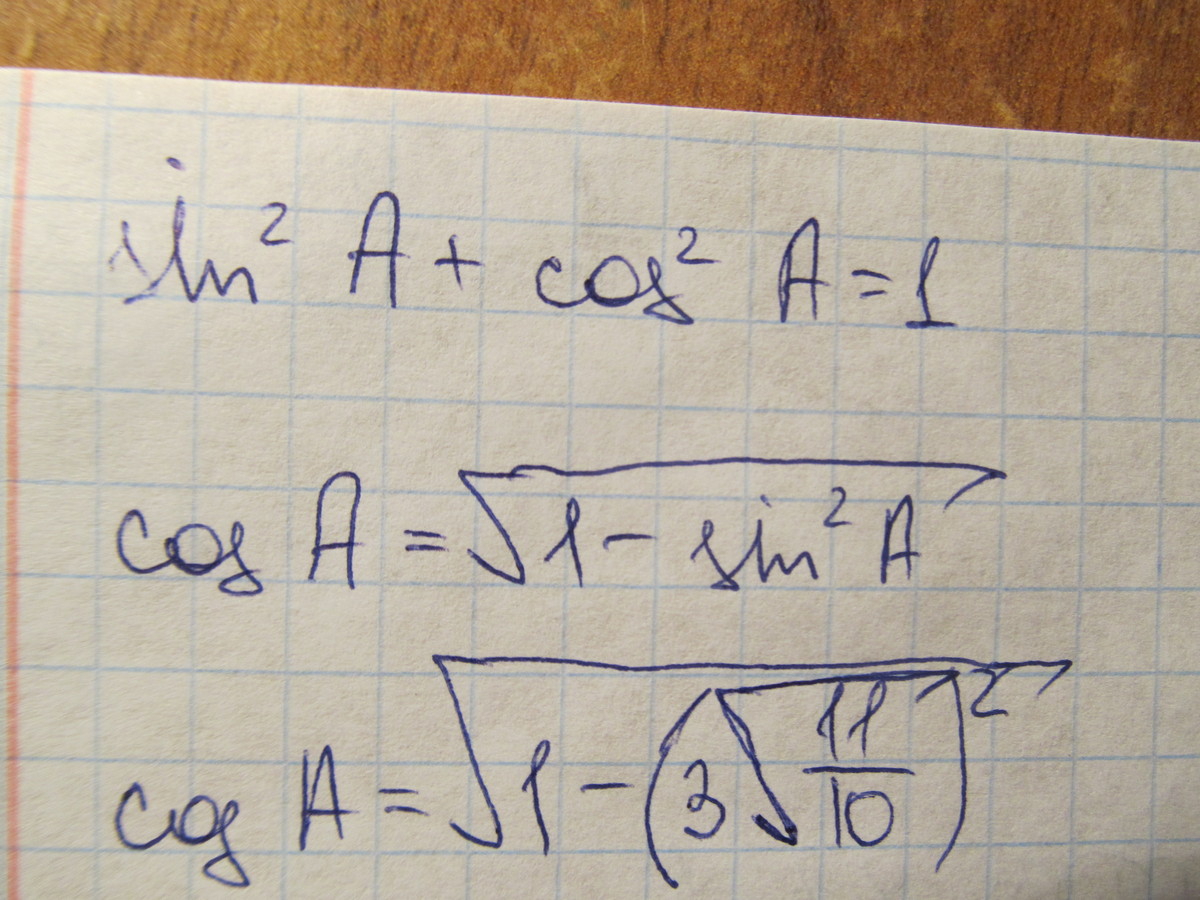 sin² A + cos² A = 1
cos A = √(1 - sin² A)
cos A = √(1 - (3√(11/10))²)